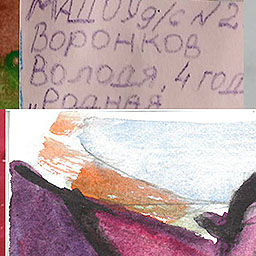 МАДОУ д/с №2
ВОРОНКОВ
ВОЛОДЯ, 4 ГОД
„РОДНАЯ